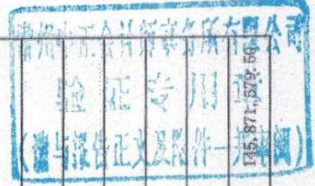 州正会计师事务所有限公司
验证专用章
与报告正文及附件一并阅)
145,871,579.50